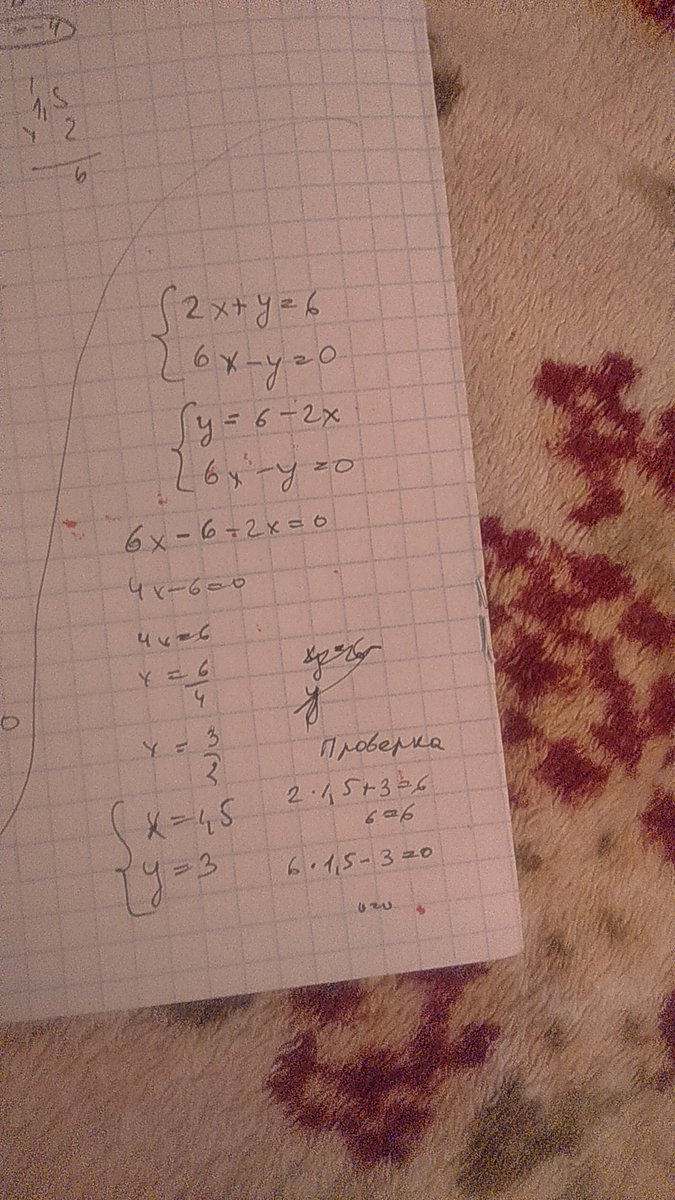 --4
1
1,5
x 2
6
{ 2x+y=6
6x-y=0
{ y = 6-2x
6x-y=0
6x-6-2x=0
4x-6=0
4x=6
x = 6/4
x = 3/2
{ x=1,5
y=3
y
Проверка
2·1,5+3=6
6=6
6·1,5-3=0
0=0
0